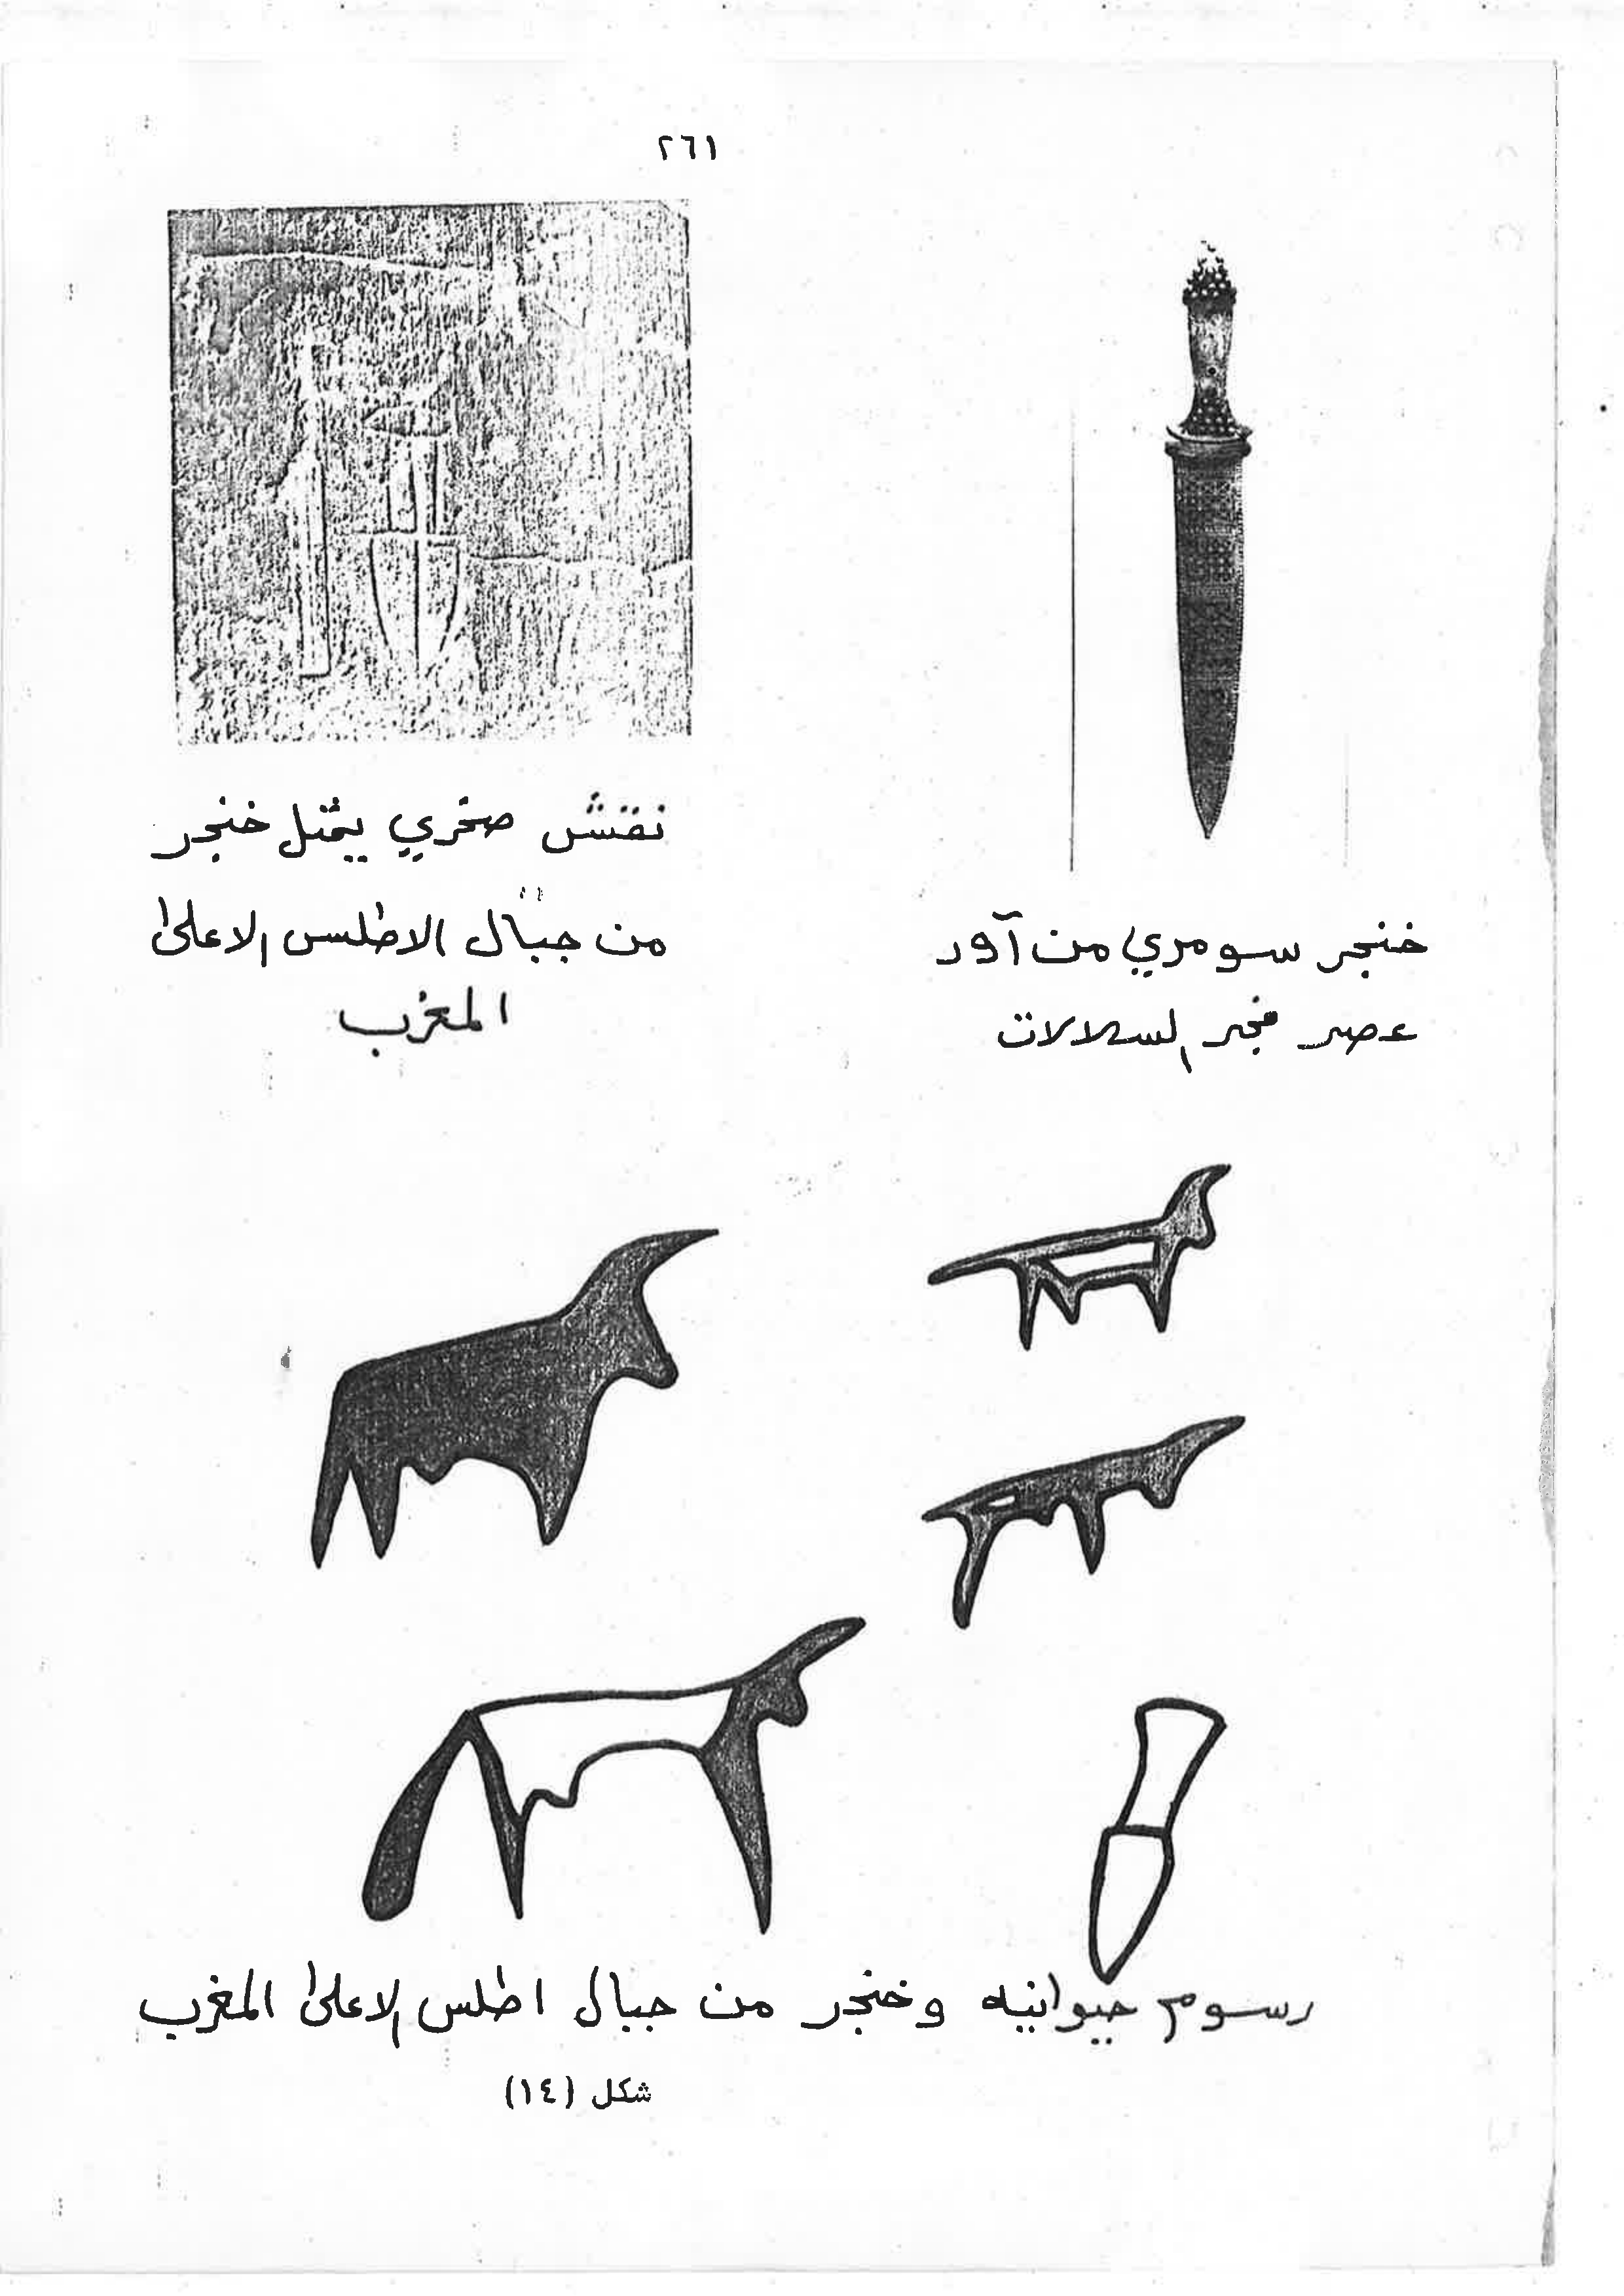 ٢٦١
خنجر سومري من آور
عصر فجر السلالات
نقش صخري يمثل خنجر
من جبال الاطلس الاعلى
المغرب
رسوم حيوانيه وخنجر من جبال اطلس الاعلى المغرب
شكل (١٤)